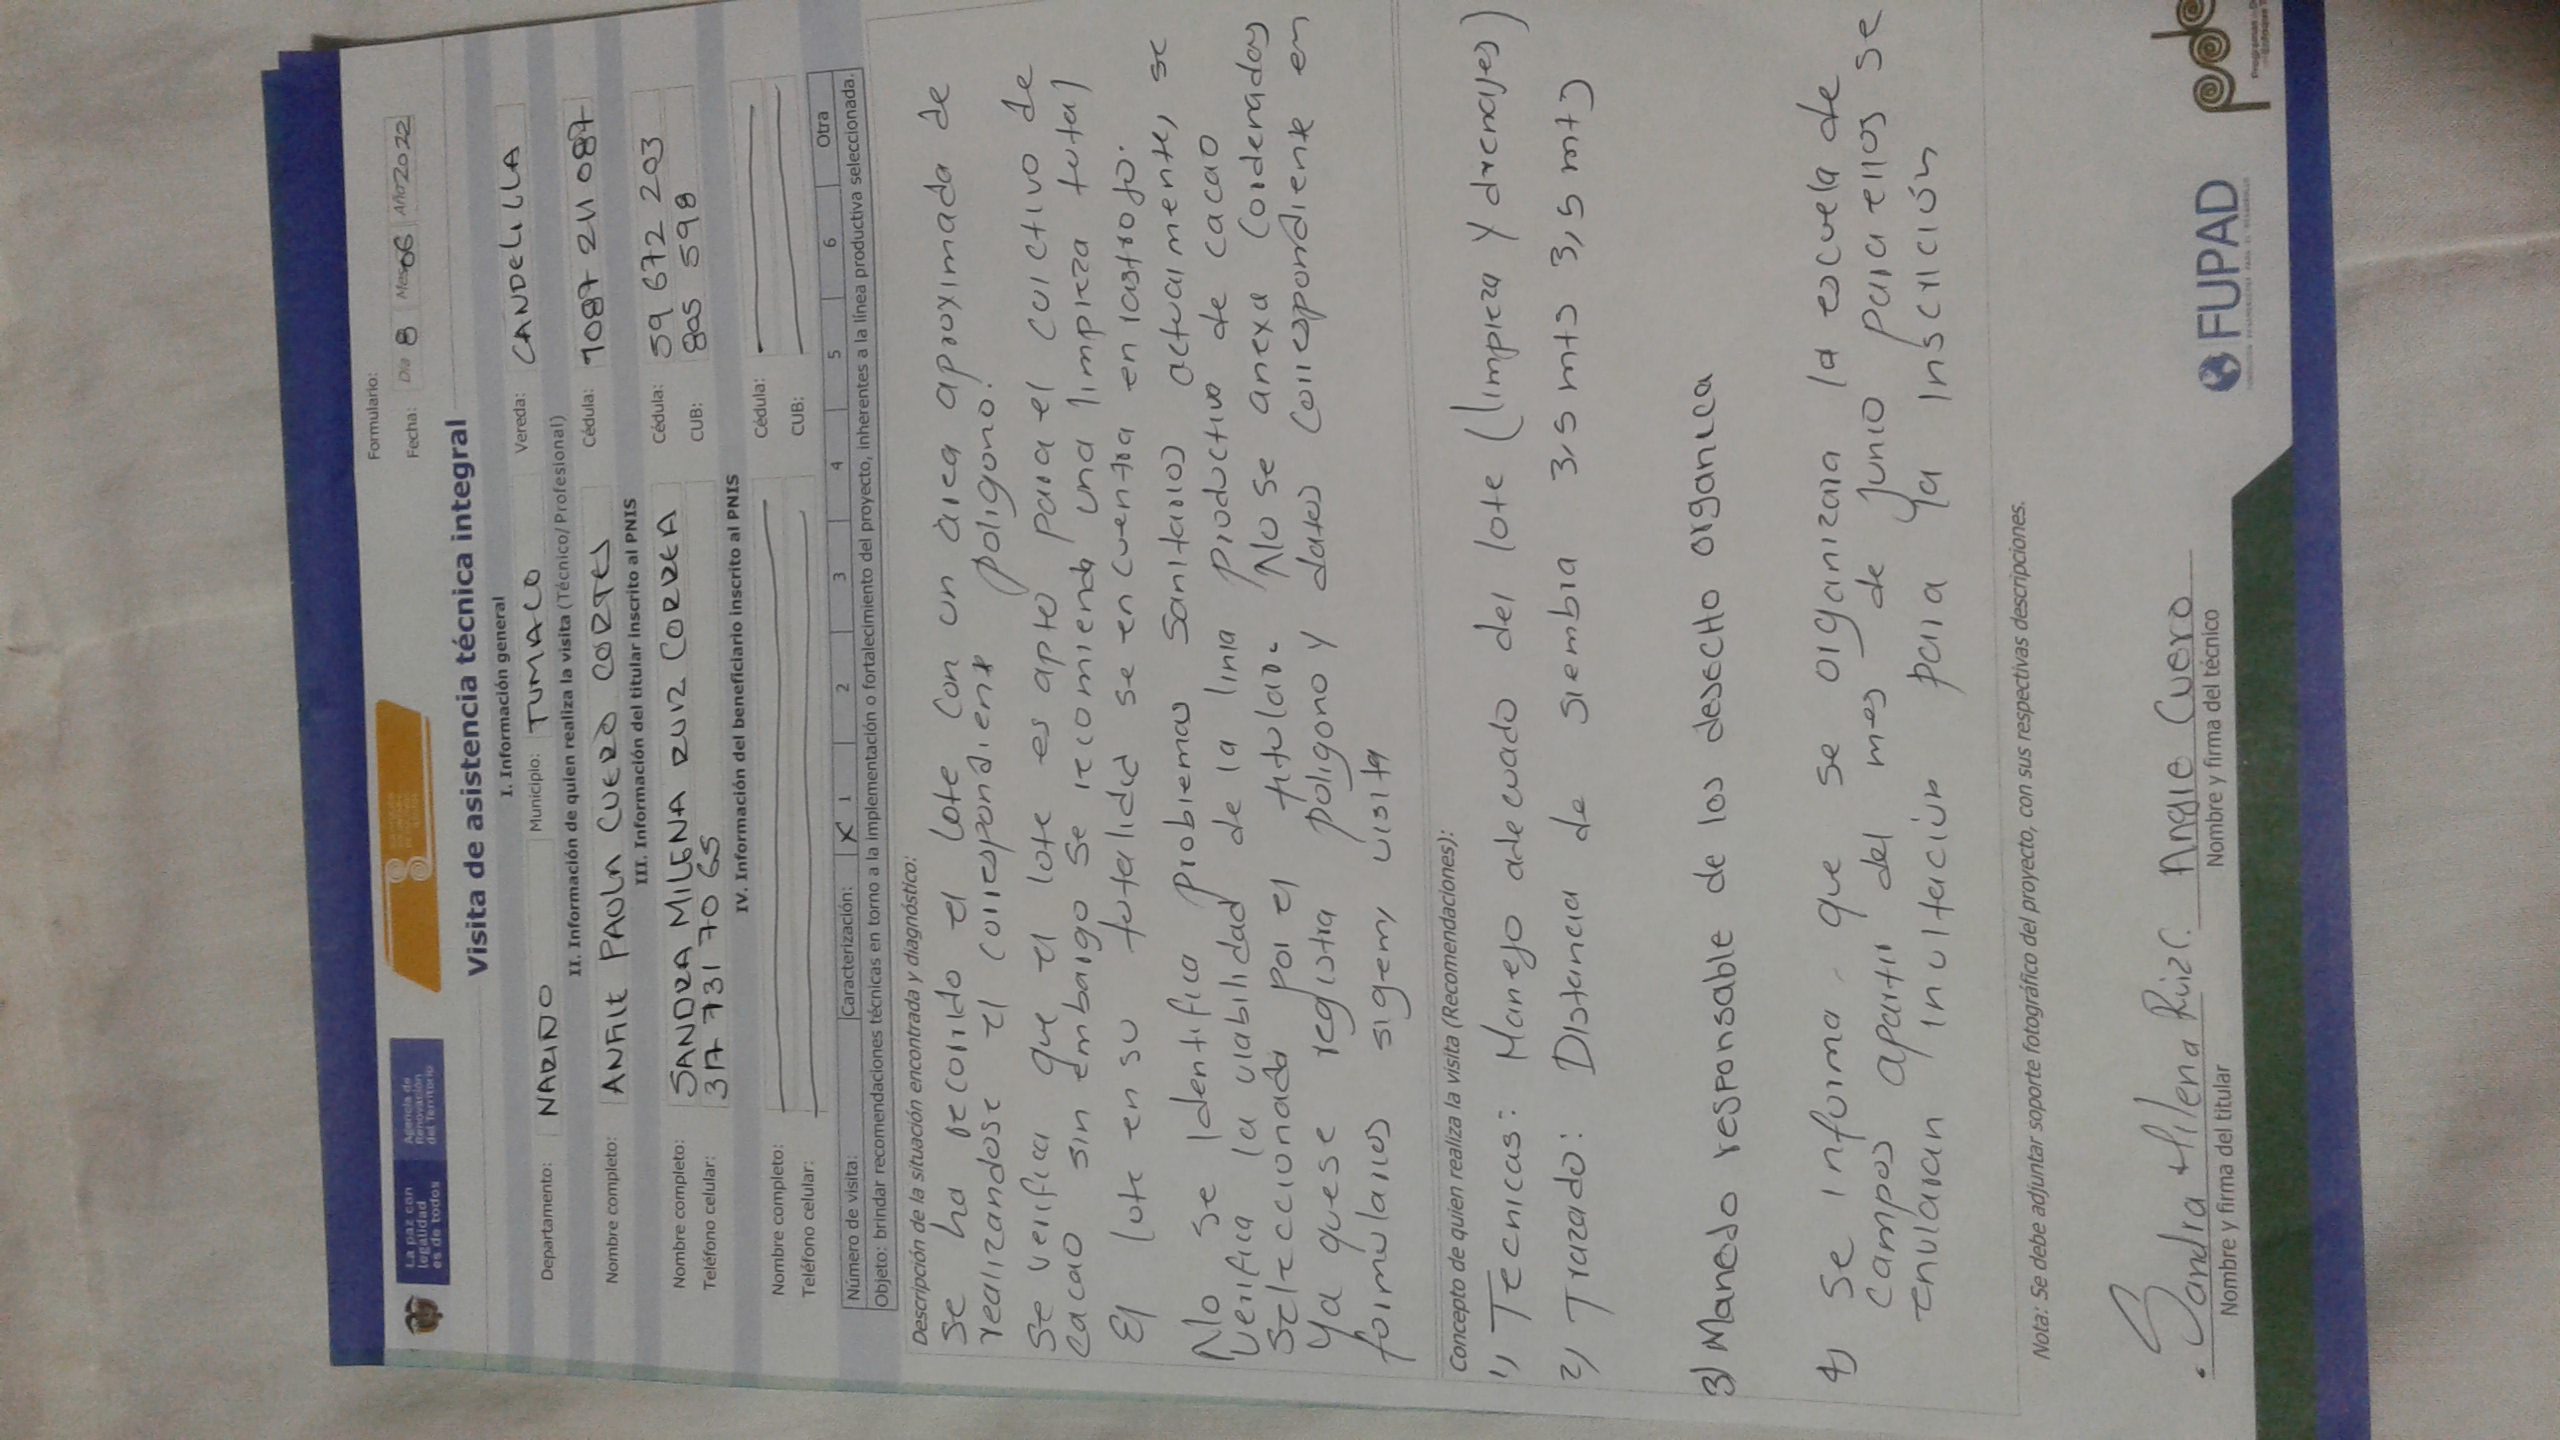 Formulario:
Fecha: Día 8 Mes 06 Año 2022
La paz con
legalidad
es de todos
Agencia de
Renovación
del Territorio
Visita de asistencia técnica integral
I. Información general
Departamento: NARIÑO Municipio: TUMACO Vereda: CANDELILLA
II. Información de quien realiza la visita (Técnico/Profesional)
Nombre completo: PAOLA CUERO CORTES Cédula: 1087 211 087
III. Información del titular inscrito al PNIS
Nombre completo: SANDRA MILENA RUIZ CORREA Cédula: 59 672 203
Teléfono celular: 317 731 70 65 CUB: 805 598
IV. Información del beneficiario inscrito al PNIS
Nombre completo: Cédula:
Teléfono celular: CUB:
Número de visita: Caracterización: X 1 2 3 4 5 6 Otra
Objeto: brindar recomendaciones técnicas en torno a la implementación o fortalecimiento del proyecto, inherentes a la línea productiva seleccionada.
Descripción de la situación encontrada y diagnóstico:
Se ha recorrido el lote con un área aproximada de
realizandose el correspondiente poligono.
Se verifica que el lote es apto para el cultivo de
cacao sin embargo se recomienda una limpieza total
El lote en su totalidad se encuentra en rastrojo.
No se Identifica problemas Sanitarios actualmente, se
verifica la viabilidad de la linia productiva de cacao
seleccionada por el titular. No se anexa Cordenadas
Ya que se registra poligono y datos correspondiente en
formularios sigem, visita
Concepto de quien realiza la visita (Recomendaciones):
1) Tecnicas: Manejo adecuado del lote (limpieza Y drenajes)
2) Trazado: Distancia de siembra 3,5 mts 3,5 mts
3) Manedo responsable de los desecho organica
4) Se informa que se organizara la escuela de
campos apartir del mes de Junio para ellos se
enviaran invitación para Ya Inscrición
Nota: Se debe adjuntar soporte fotográfico del proyecto, con sus respectivas descripciones.
Sandra Milena Ruiz C. Angie Cuero
Nombre y firma del titular Nombre y firma del técnico
FUPAD